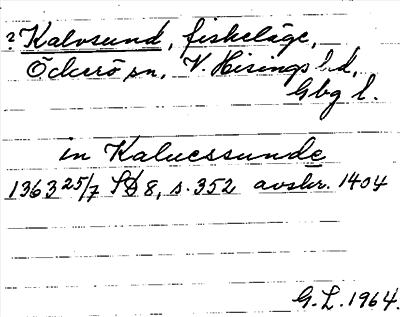 ? Kalvsund, fiskeläge,
Öckerö sn, V. Hisings hd,
Gbg l.
in Kaluessunde
1363 25/7 SD 8, s. 352 avskr. 1404
G. L. 1964.